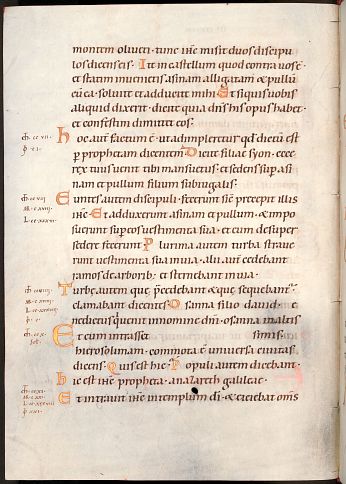 montem oliueti · tunc ihc misit duos discipu
los dicens eis · Ite in castellum quod contra uos ē
et statim inuenietis asinam alligatam & pullū
cū ea · soluite et adducite mihi · Et si quis uobis
aliquid dixerit · dicite quia dn̄s his opus habet ·
et confestim dimittet eos ·
Hoc autem factum ē · ut adimpleretur qđ dictū est
per prophetam dicentem · Dicite filiae syon · ecce
rex tuus uenit tibi mansuetus · et sedens sup asi
nam et pullum filium subiugalis ·
Euntes autem discipuli · fecerunt sic̄ precepit illis
ihc · Et adduxerunt asinam et pullum · & impo
suerunt sup eos uestimenta sua · et eum desuper
sedere fecerunt · Plurima autem turba straue
runt uestimenta sua in uia · alii aut̄ cedebant
ramos de arborib; et sternebant in uia ·
Turbę autem quę p̄cedebant & quę sequebant᷑
clamabant dicentes · Osanna filio dauid · be
nedictus qui uenit in nomine dn̄i · osanna in altis
Et cum intrasset simis ·
hierosolimam · commota ē uniuersa ciuitas
dicens · Quis est hic · Populi autem dicebant ·
hic est ihc propheta · a nazareth galileae ·
Et intrauit ihc in templum dī · & eiciebat om̄s